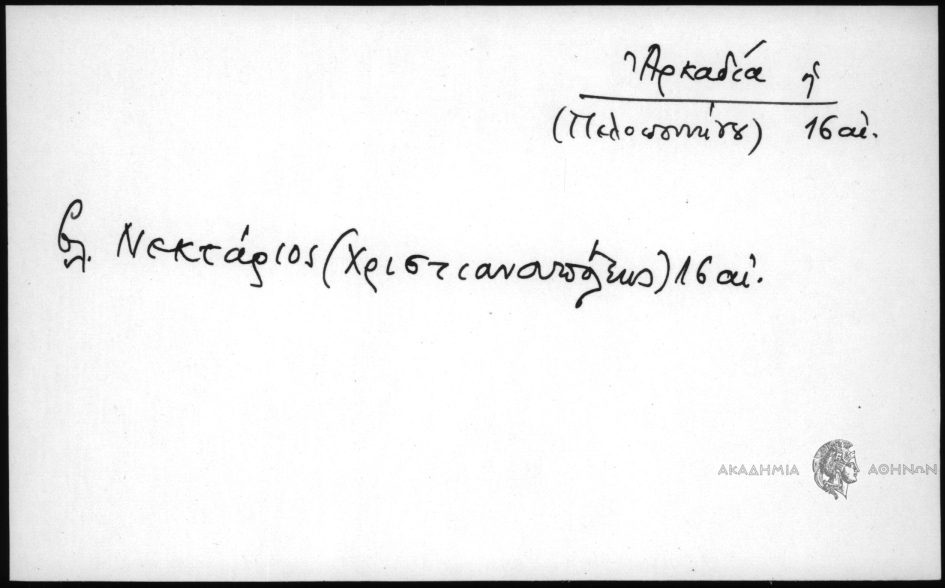 Ἀρκαδία ἡ
(Πελοποννήσου) 16 αἰ.
βλ. Νεκτάριος (Χριστιανουπόλεως) 16 αἰ.
ΑΚΑΔΗΜΙΑ ΑΘΗΝΩΝ